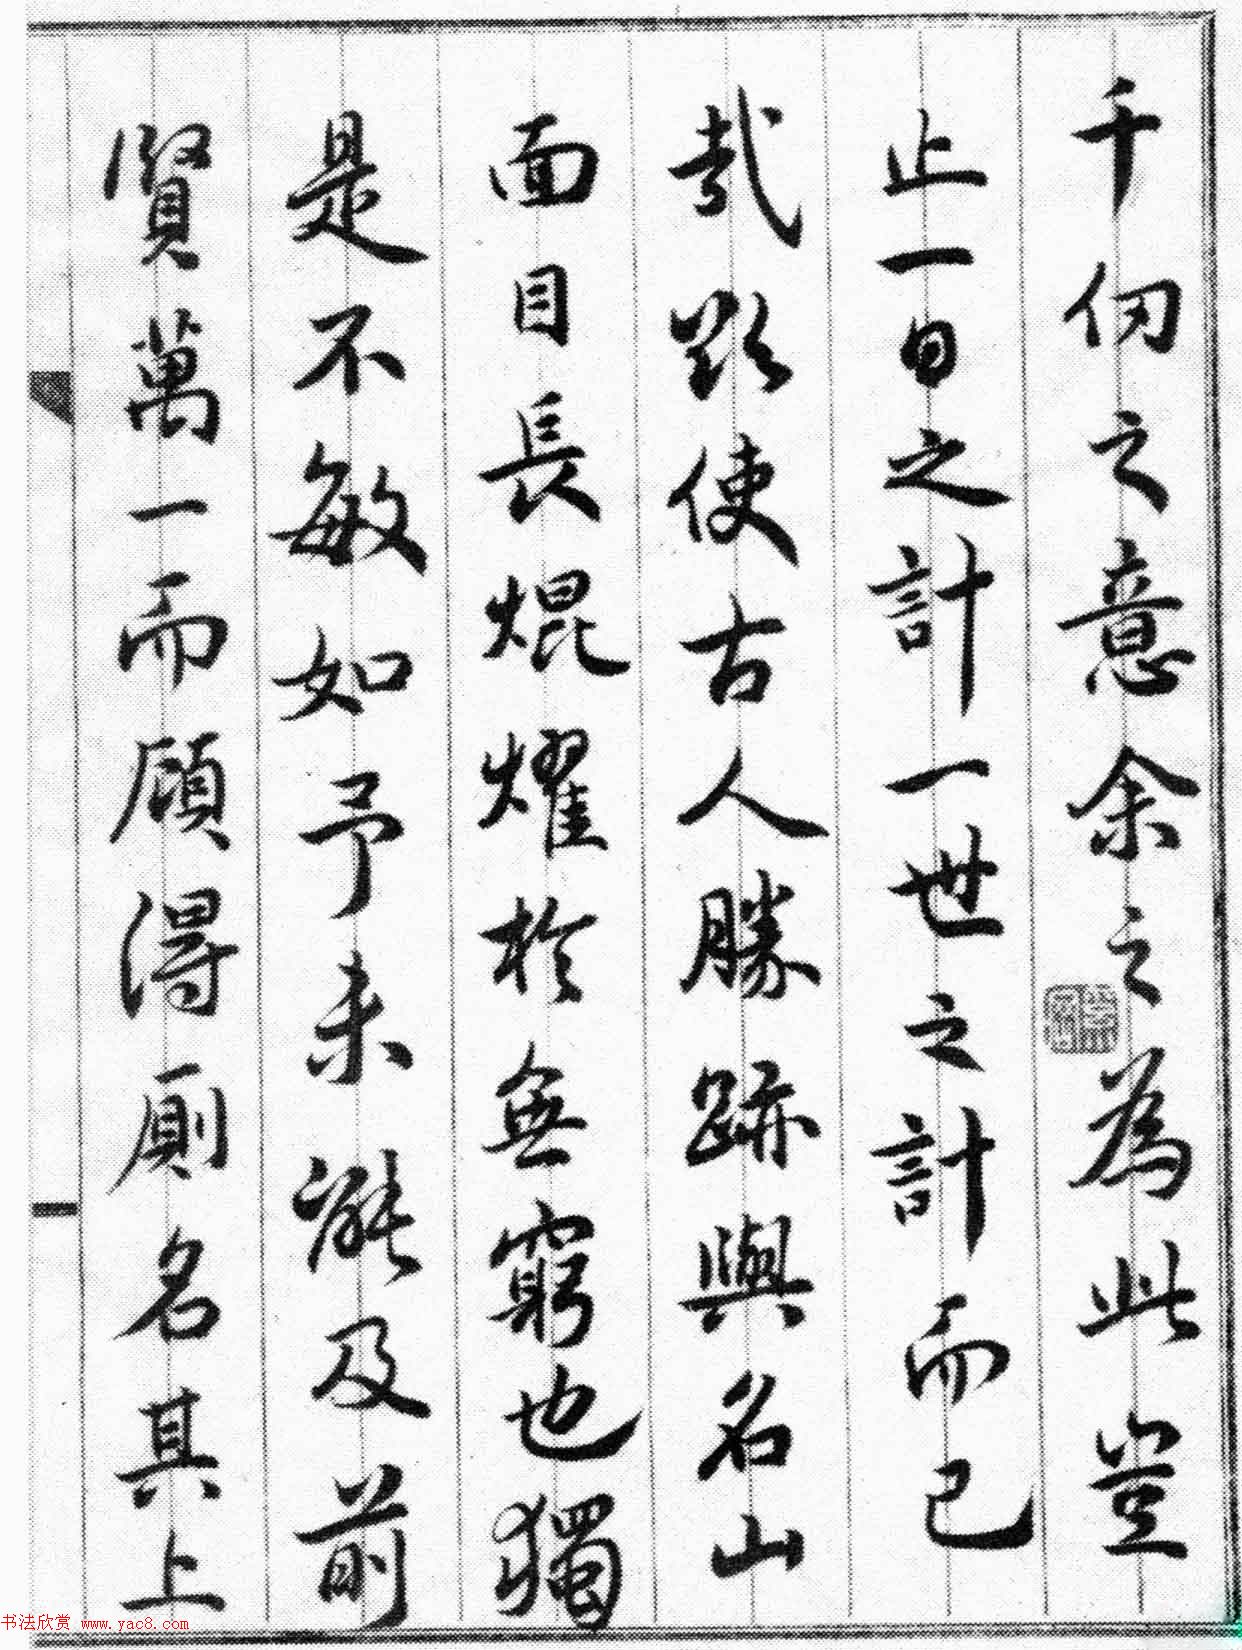 千仞之意余之為此豈
止一日之計一世之計而已
哉欲使古人勝跡與名山
面目長焜耀於無窮也獨
是不敏如予未能及前
賢萬一而顧得廁名其上
书法欣赏 www.yac8.com